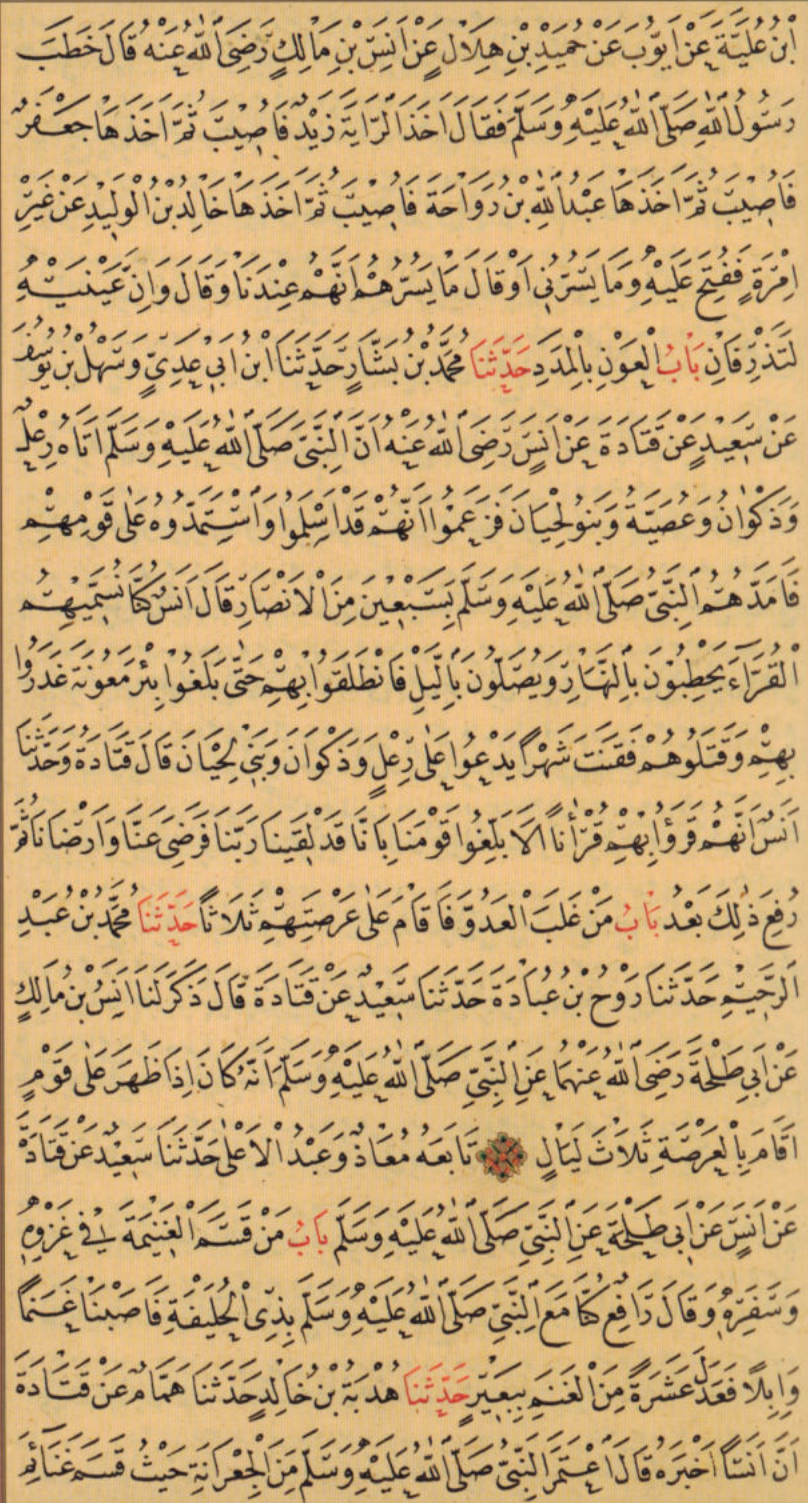 ابْنُ عُلَيَّةَ عَنْ اَيُّوبَ عَنْ حُمَيْدِ بْنِ هِلَالٍ عَنْ اَنَسِ بْنِ مَالِكٍ رَضِىَ اللهُ عَنْهُ قَالَ خَطَبَ
رَسُولُ اللهِ صَلَّى اللهُ عَلَيْهِ وَسَلَّمَ فَقَالَ اَخَذَ الرَّايَةَ زَيْدٌ فَاُصِيبَ ثُمَّ اَخَذَهَا جَعْفَرٌ
فَاُصِيبَ ثُمَّ اَخَذَهَا عَبْدُ اللهِ بْنُ رَوَاحَةَ فَاُصِيبَ ثُمَّ اَخَذَهَا خَالِدُ بْنُ الْوَلِيدِ عَنْ غَيْرِ
اِمْرَةٍ فَفُتِحَ عَلَيْهِ وَمَا يَسُرُّنِى اَوْ قَالَ مَا يَسُرُّهُمْ اَنَّهُمْ عِنْدَنَا وَقَالَ وَاِنَّ عَيْنَيْهِ
لَتَذْرِفَانِ بَابُ الْعَوْنِ بِالْمَدَدِ حَدَّثَنَا مُحَمَّدُ بْنُ بَشَّارٍ حَدَّثَنَا ابْنُ اَبِى عَدِىٍّ وَسَهْلُ بْنُ يُوسُفَ
عَنْ سَعِيدٍ عَنْ قَتَادَةَ عَنْ اَنَسٍ رَضِىَ اللهُ عَنْهُ اَنَّ النَّبِىَّ صَلَّى اللهُ عَلَيْهِ وَسَلَّمَ اَتَاهُ رِعْلٌ
وَذَكْوَانُ وَعُصَيَّةُ وَبَنُو لِحْيَانَ فَزَعَمُوا اَنَّهُمْ قَدْ اَسْلَمُوا وَاسْتَمَدُّوهُ عَلَى قَوْمِهِمْ
فَاَمَدَّهُمُ النَّبِىُّ صَلَّى اللهُ عَلَيْهِ وَسَلَّمَ بِسَبْعِينَ مِنَ الْاَنْصَارِ قَالَ اَنَسٌ كُنَّا نُسَمِّيهِمُ
الْقُرَّاءَ يَحْطِبُونَ بِالنَّهَارِ وَيُصَلُّونَ بِاللَّيْلِ فَانْطَلَقُوا بِهِمْ حَتَّى بَلَغُوا بِئْرَ مَعُونَةَ غَدَرُوا
بِهِمْ وَقَتَلُوهُمْ فَقَنَتَ شَهْرًا يَدْعُوا عَلَى رِعْلٍ وَذَكْوَانَ وَبَنِى لِحْيَانَ قَالَ قَتَادَةُ وَحَدَّثَنَا
اَنَسٌ اَنَّهُمْ قَرَؤُا بِهِمْ قُرْاٰنًا اَلَا بَلِّغُوا قَوْمَنَا بِاَنَّا قَدْ لَقِينَا رَبَّنَا فَرَضِىَ عَنَّا وَاَرْضَانَا ثُمَّ
رُفِعَ ذٰلِكَ بَعْدُ بَابُ مَنْ غَلَبَ الْعَدُوَّ فَاَقَامَ عَلَى عَرْصَتِهِمْ ثَلَاثًا حَدَّثَنَا مُحَمَّدُ بْنُ عَبْدِ
الرَّحِيمِ حَدَّثَنَا رَوْحُ بْنُ عُبَادَةَ حَدَّثَنَا سَعِيدٌ عَنْ قَتَادَةَ قَالَ ذَكَرَ لَنَا اَنَسُ بْنُ مَالِكٍ
عَنْ اَبِى طَلْحَةَ رَضِىَ اللهُ عَنْهُمَا عَنِ النَّبِىِّ صَلَّى اللهُ عَلَيْهِ وَسَلَّمَ اَنَّهُ كَانَ اِذَا ظَهَرَ عَلَى قَوْمٍ
اَقَامَ بِالْعَرْصَةِ ثَلَاثَ لَيَالٍ تَابَعَهُ مُعَاذٌ وَعَبْدُ الْاَعْلَى حَدَّثَنَا سَعِيدٌ عَنْ قَتَادَةَ
عَنْ اَنَسٍ عَنْ اَبِى طَلْحَةَ عَنِ النَّبِىِّ صَلَّى اللهُ عَلَيْهِ وَسَلَّمَ بَابُ مَنْ قَسَمَ الْغَنِيمَةَ فِى غَزْوِهِ
وَسَفَرِهِ وَقَالَ رَافِعٌ كُنَّا مَعَ النَّبِىِّ صَلَّى اللهُ عَلَيْهِ وَسَلَّمَ بِذِى الْحُلَيْفَةِ فَاَصَبْنَا غَنَمًا
وَاِبِلًا فَعَدَلَ عَشَرَةً مِنَ الْغَنَمِ بِبَعِيرٍ حَدَّثَنَا هُدْبَةُ بْنُ خَالِدٍ حَدَّثَنَا هَمَّامٌ عَنْ قَتَادَةَ
اَنَّ اَنَسًا اَخْبَرَهُ قَالَ اعْتَمَرَ النَّبِىُّ صَلَّى اللهُ عَلَيْهِ وَسَلَّمَ مِنَ الْجِعْرَانَةِ حَيْثُ قَسَمَ غَنَائِمَ